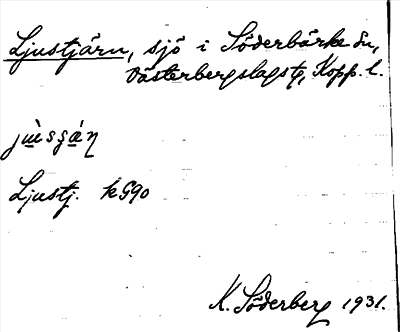 Ljustjärn, sjö i Söderbärke sn,
Västerbergslags tg, Kopp. l.
Ljustj. kG90
K. Söderberg 1931.